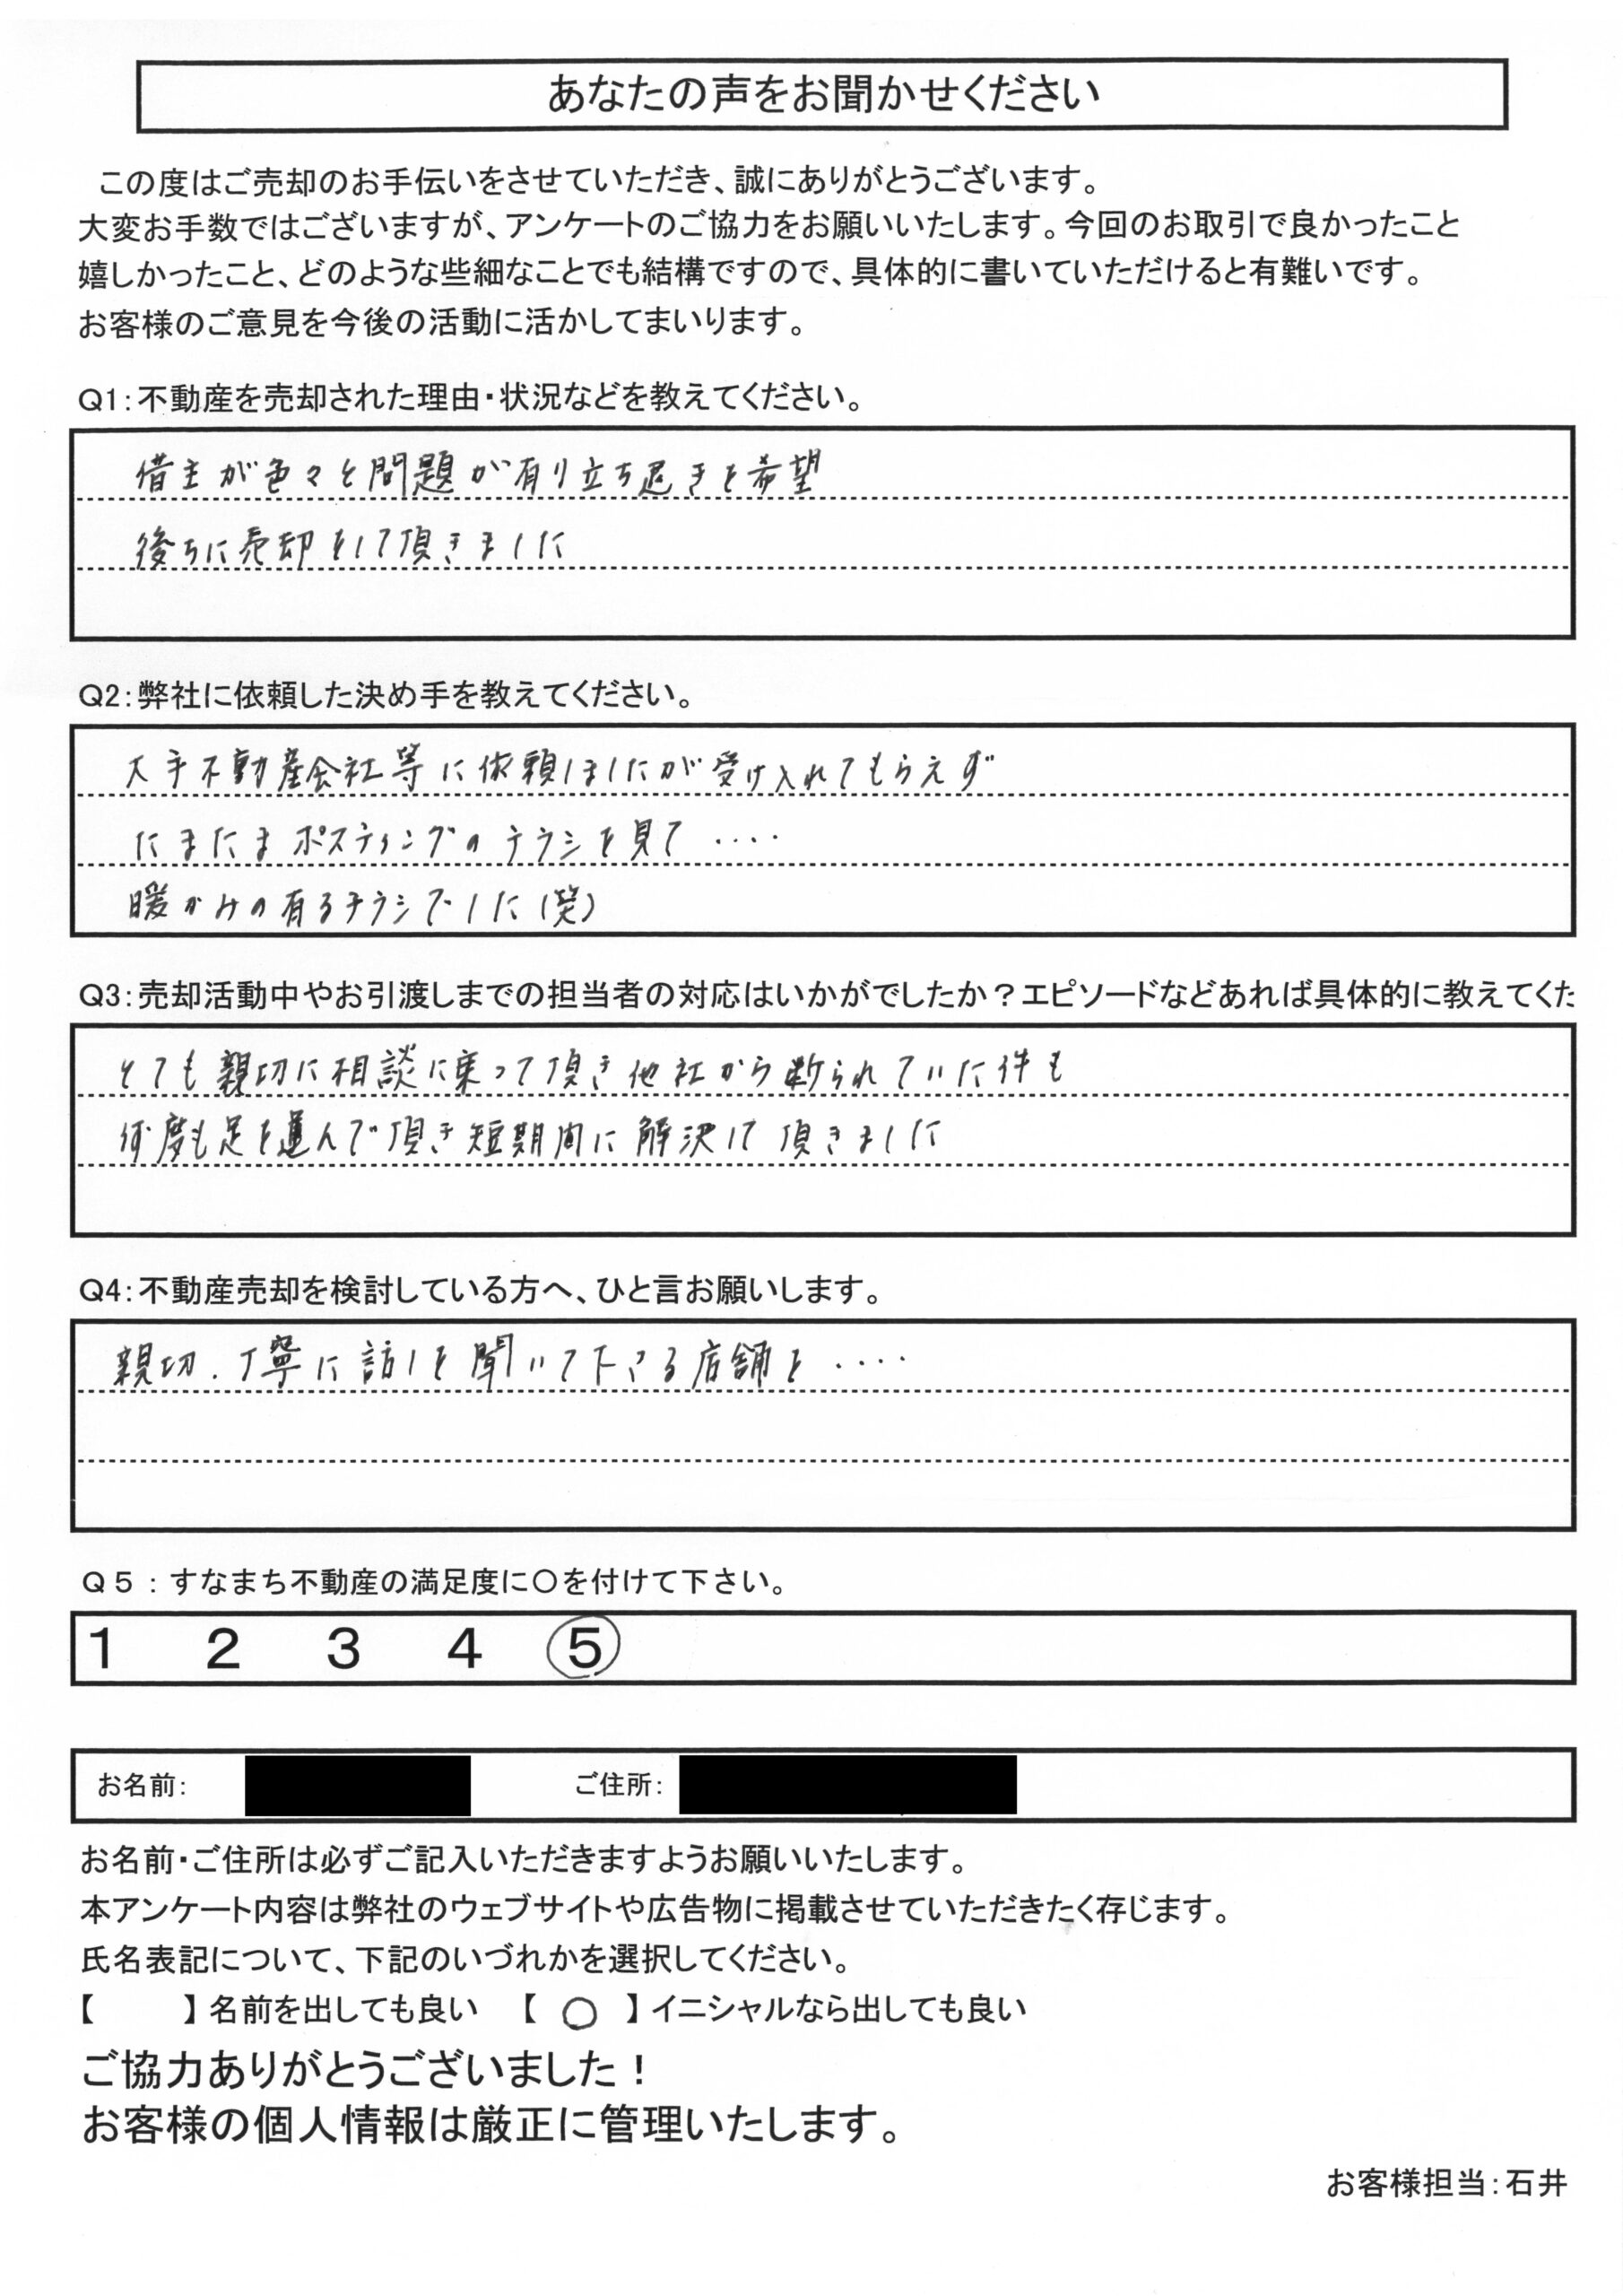 あなたの声をお聞かせください
この度はご売却のお手伝いをさせていただき、誠にありがとうございます。
大変お手数ではございますが、アンケートのご協力をお願いいたします。今回のお取引で良かったこと
嬉しかったこと、どのような些細なことでも結構ですので、具体的に書いていただけると有難いです。
お客様のご意見を今後の活動に活かしてまいります。
Q1:不動産を売却された理由・状況などを教えてください。
借主が色々と問題が有り立ち退きを希望
後ちに売却をして頂きました
Q2:弊社に依頼した決め手を教えてください。
大手不動産会社等に依頼しましたが受け入れてもらえず
たまたまポスティングのチラシを見て‥‥
暖かみの有るチラシでした(笑)
Q3:売却活動中やお引渡しまでの担当者の対応はいかがでしたか?エピソードなどあれば具体的に教えてくた
とても親切に相談に乗って頂き他社から断られていた件も
何度も足を運んで頂き短期間に解決して頂きました
Q4:不動産売却を検討している方へ、ひと言お願いします。
親切.丁寧に話しを聞いて下さる店舗を‥‥
Q5:すなまち不動産の満足度に〇を付けて下さい。
1 2 3 4 5
お名前: ご住所:
お名前・ご住所は必ずご記入いただきますようお願いいたします。
本アンケート内容は弊社のウェブサイトや広告物に掲載させていただきたく存じます。
氏名表記について、下記のいづれかを選択してください。
【 】名前を出しても良い 【 〇 】イニシャルなら出しても良い
ご協力ありがとうございました!
お客様の個人情報は厳正に管理いたします。
お客様担当:石井